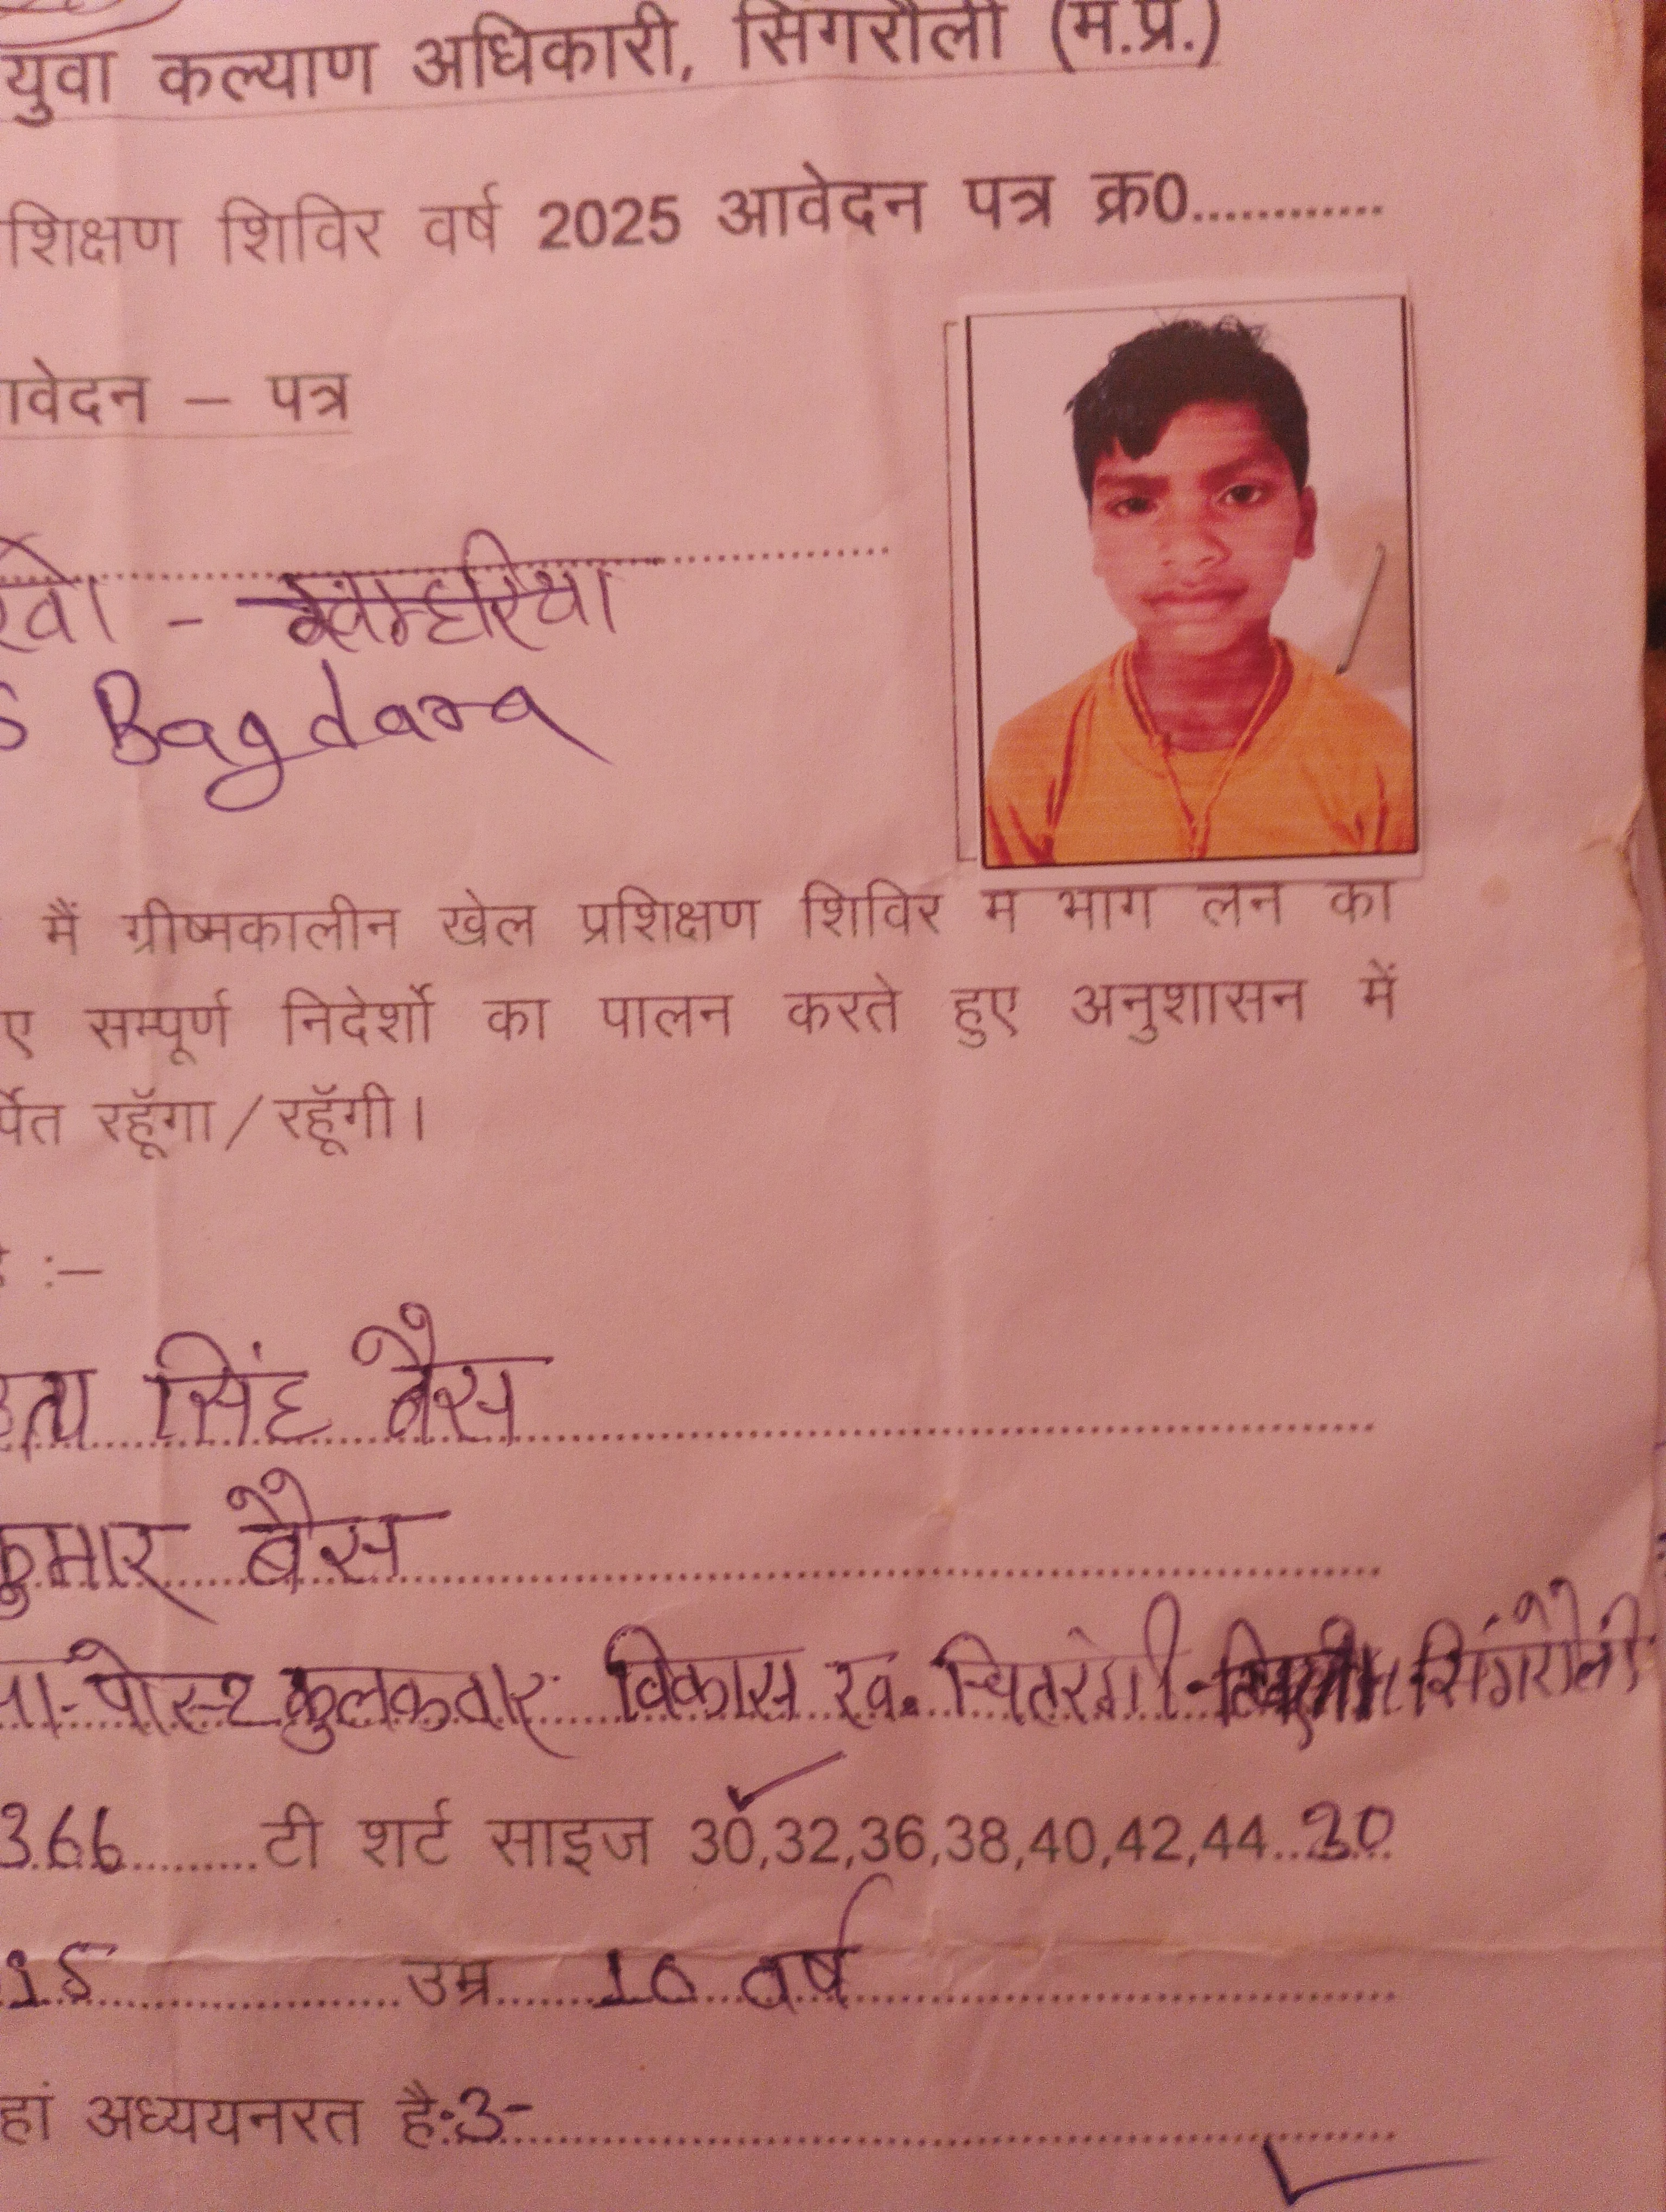 युवा कल्याण अधिकारी, सिंगरौली (म.प्र.)
शिक्षण शिविर वर्ष 2025 आवेदन पत्र क्र0............
आवेदन – पत्र
खो - खम्हरिया
S Bagdara
मैं ग्रीष्मकालीन खेल प्रशिक्षण शिविर में भाग लेने का
ए सम्पूर्ण निदेर्शो का पालन करते हुए अनुशासन में
र्पित रहूॅगा / रहूॅगी।
:–
सिंह बैस
कुमार बैस
पोस्ट कुलकवार विकास ख. चितरंगी सिंगरौली
366 टी शर्ट साइज 30,32,36,38,40,42,44 30
15 उम्र 10 वर्ष
हां अध्ययनरत है:-3-